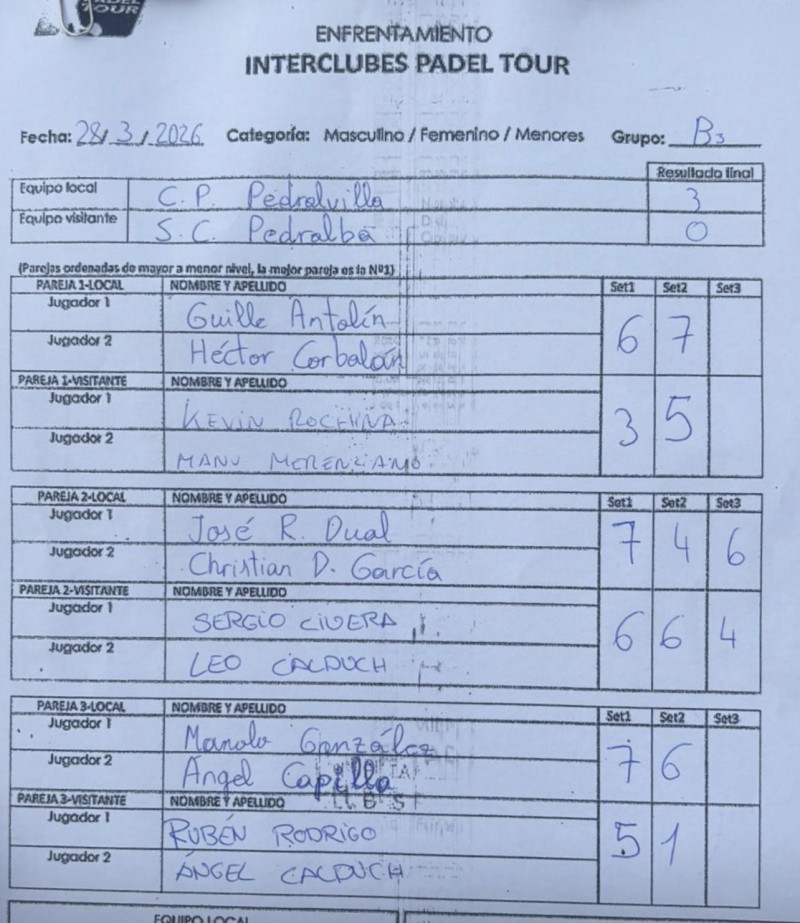 PADEL
TOUR
ENFRENTAMIENTO
INTERCLUBES PADEL TOUR
Fecha: 28/3/2026 Categoría: Masculino / Femenino / Menores Grupo: B3
Resultado final
Equipo local C.P. Pedralvilla 3
Equipo visitante S.C. Pedralba 0
(Parejas ordenadas de mayor a menor nivel, la mejor pareja es la Nº1)
PAREJA 1-LOCAL NOMBRE Y APELLIDO Set1 Set2 Set3
Jugador 1 Guille Antolín 6 7
Jugador 2 Héctor Corbalán
PAREJA 1-VISITANTE NOMBRE Y APELLIDO
Jugador 1 KEVIN ROCHINA 3 5
Jugador 2 MANU MERENCIANO
PAREJA 2-LOCAL NOMBRE Y APELLIDO Set1 Set2 Set3
Jugador 1 José R. Dual 7 4 6
Jugador 2 Christian D. García
PAREJA 2-VISITANTE NOMBRE Y APELLIDO
Jugador 1 SERGIO CIVERA 6 6 4
Jugador 2 LEO CALDUCH
PAREJA 3-LOCAL NOMBRE Y APELLIDO Set1 Set2 Set3
Jugador 1 Manolo González 7 6
Jugador 2 Ángel Capilla
PAREJA 3-VISITANTE NOMBRE Y APELLIDO
Jugador 1 RUBÉN RODRIGO 5 1
Jugador 2 ÁNGEL CALDUCH
EQUIPO LOCAL